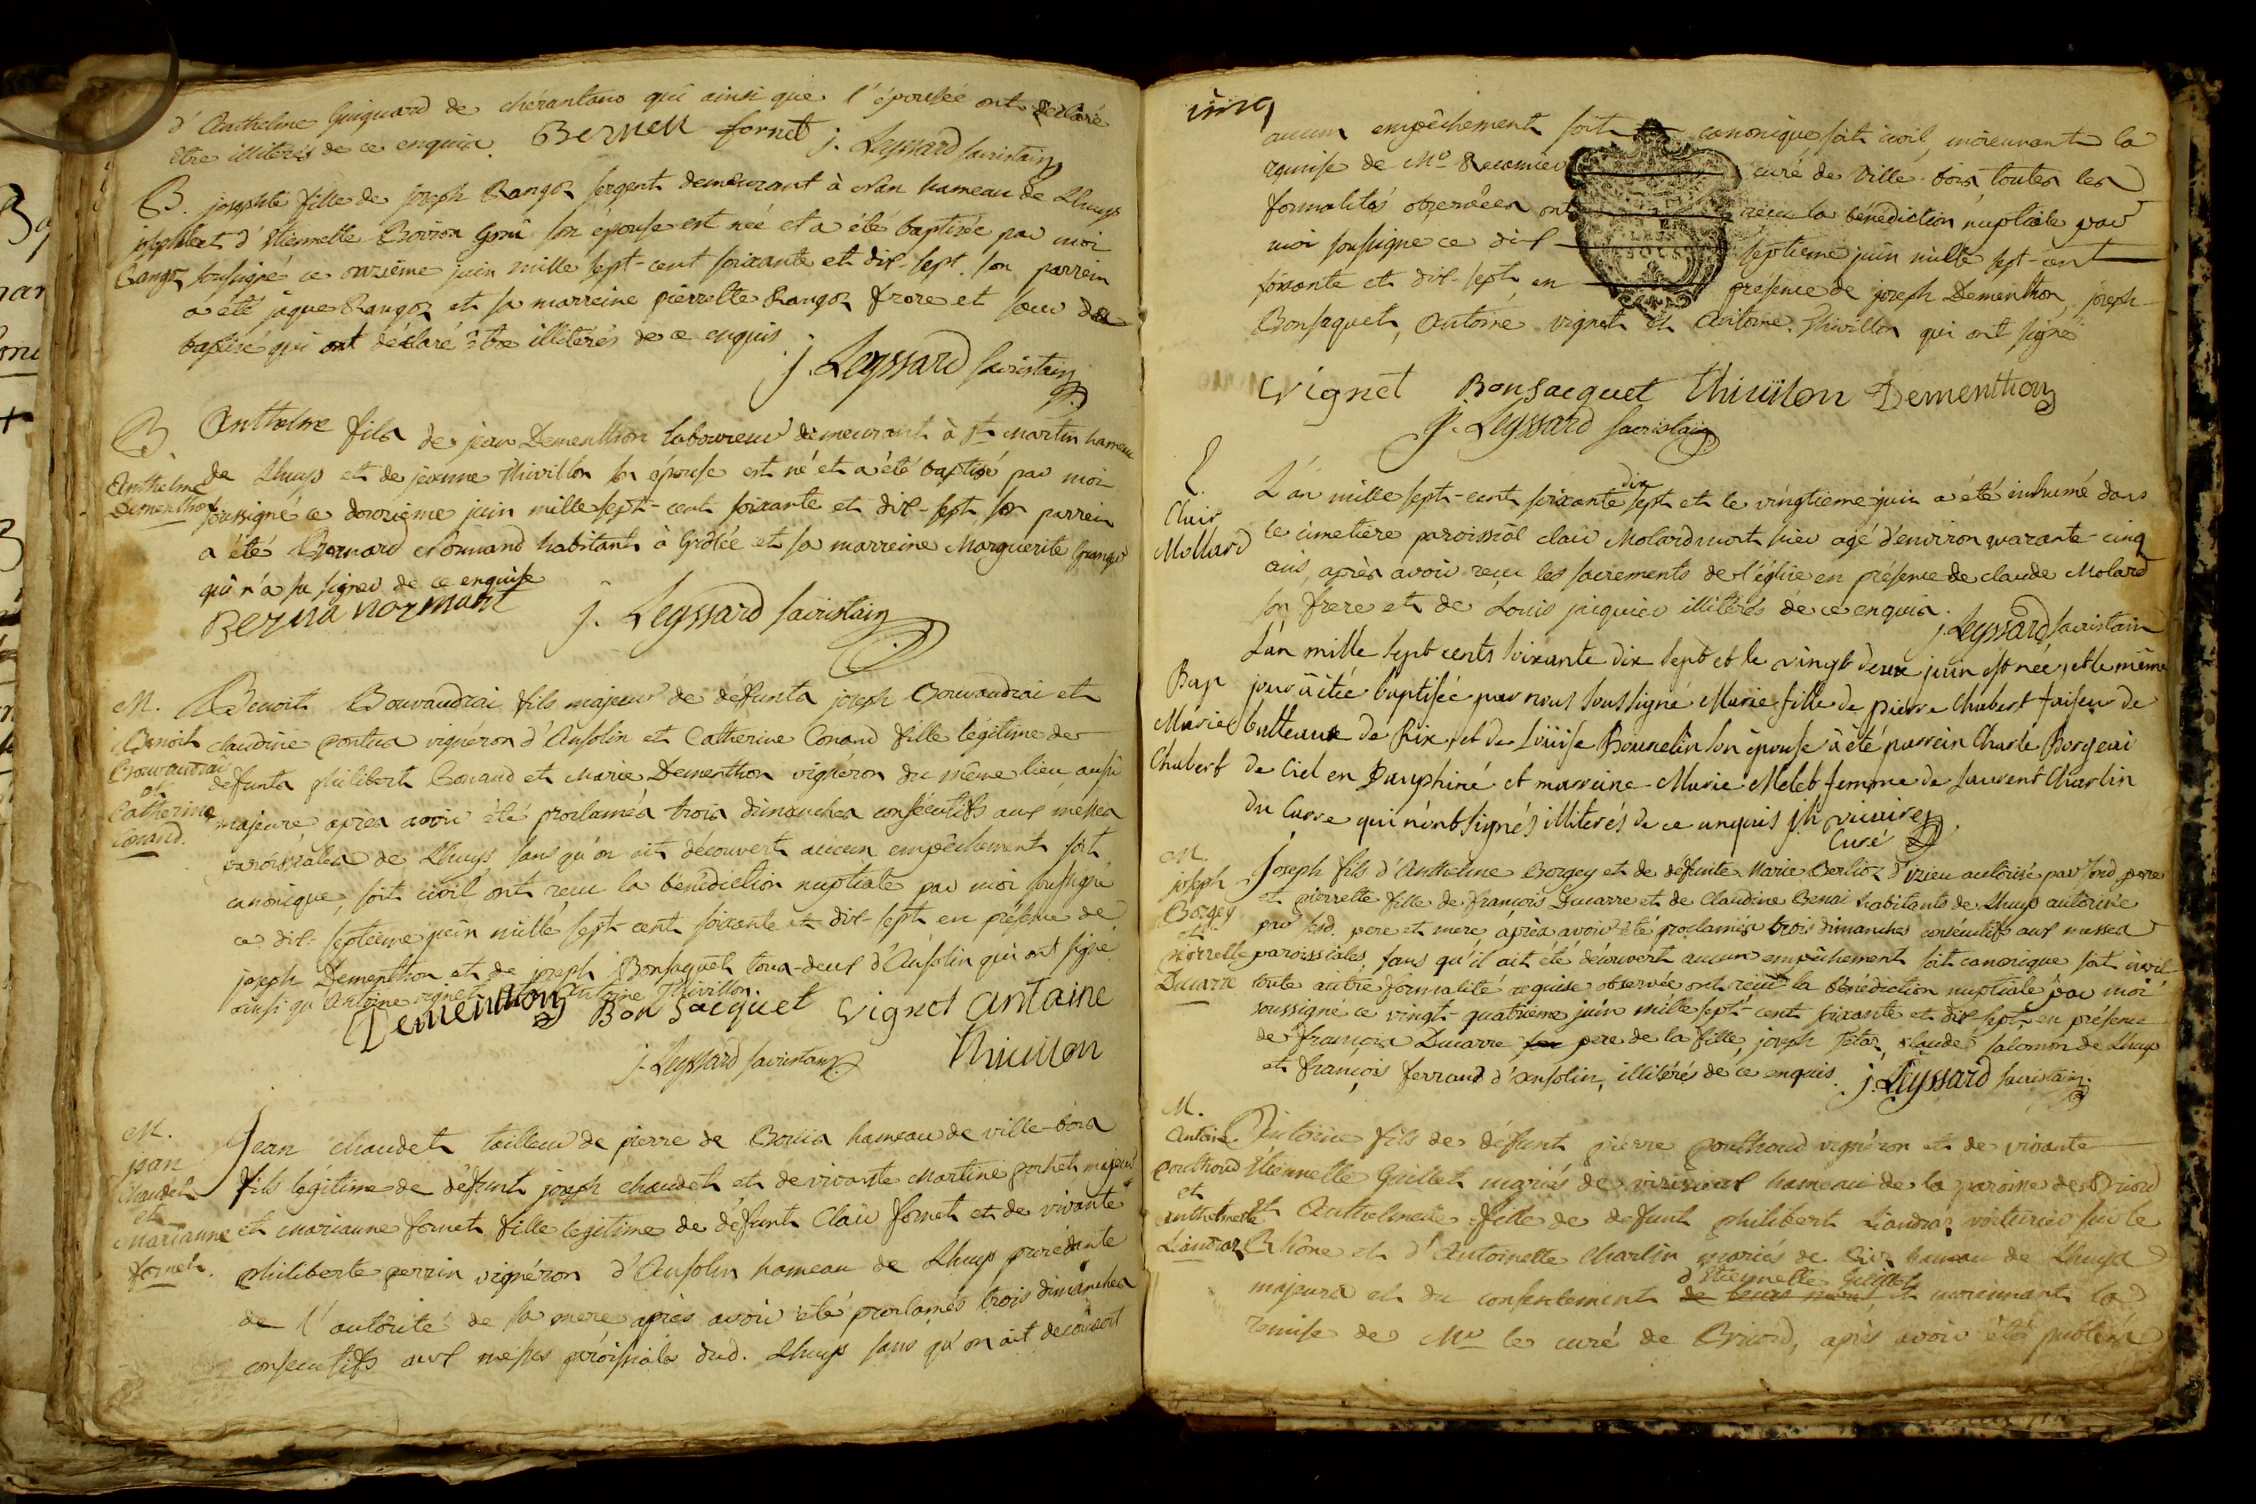 d'Anthelme Guiguard de chérantano qui ainsi que l'épousée ont déclaré
être illiterés de ce enquis. Bernen fornet j. Leyssard sacristain
B. josephte fille de joseph Rangoz sergent demeurant à hameau de Lhuys
josephte et d'Etiennette Boiron son épouse est née et a été baptisée par moi
Rangoz soussigné ce onzième juin mille sept-cent soixante et dix-sept. son parrein
a été jaque Rangoz et sa marreine pierrette Rangoz frere et soeur de
baptisé qui ont déclaré être illiterés de ce enquis.
j. Leyssard sacristain
B. Anthelme fils de jean Dementhon laboureur demeurant à St martin hameau
Anthelme de Lhuys et de jeanne Thivillon son épouse est né et a été baptisé par moi
Dementhon soussigné ce douzieme juin mille sept-cent soixante et dix-sept, son parrein
a été Bernard Normand habitant à Grôlée et sa marreine Marguerite
qui n'a su signer de ce enquise
Berna normant j. Leyssard sacristain
M. Benoit Bouvandrai fils majeur de défunts joseph Bouvandrai et
Benoit claudine pontus vignéron d'Ansolin et Catherine Conand fille légitime de
Bouvandrai défunts philibert Conand et Marie Dementhon vignéron du même lieu aussi
et
Catherine majeure, après avoir été proclamés trois dimanches consécutifs aux messes
Conand. paroissiales de Lhuys sans qu'on ait découvert aucun empêchement soit
canonique, soit civil ont reçu la bénédiction nuptiale par moi soussigné
ce dix-septième juin mille sept-cent soixante et dix-sept en présence de
joseph Dementhon et de joseph Bonsaquet tous-deux d'Ansolin qui ont signé
ainsi qu'Antoine vignet et Antoine Thivillon.
Dementhon Bon Sacquet Vignet antoine
j. Leyssard sacristain Thivillon
M. Jean chaudet tailleur de pierre de Bouis hameau de ville-bois
jean
Chaudet fils légitime de défunt joseph chaudet et de vivante Martine pochet, majeur
et
Marianne et marianne fornet fille legitime de défunt Clair fornet et de vivante
fornet. philiberte perrin vignéron d'Ansolin hameau de Lhuys procédante
de l'autorité de sa mere après avoir été proclamés trois dimanches
consecutifs aux messes paroissiales dud. Lhuys sans qu'on ait découvert
cinq
aucun empêchement soit canonique, soit civil, moiennant la
remise de Mr Recamier curé de ville-bois toutes les
formalités observées ont reçu la bénédiction nuptiale par
moi soussigné ce dix septieme juin mille sept-cent
soixante et dix-sept, en présence de joseph Dementhon, joseph
Bonsaquet, Antoine vignet et Antoine Thivillon qui ont signé
Vignet Bonsacquet Thivillon Dementhon
j. Leyssard sacristain
L'an mille sept-cent soixante dix sept et le vingtieme juin a été inhumé dans
Clair
Mollard le cimetière paroissial clair Molard mort hier agé d'environ quarante-cinq
ans, après avoir reçu les sacrements de l'église en présence de claude Molard
son frere et de Louis jacquier illiterés de ce enquis.
j. Leyssard sacristain
L'an mille sept cents soixante dix sept et le vingt deux juin est née, et le même
Bap jour à été baptisée par nous soussigné Marie fille de pierre Chabert faiseur de
Marie batteaux de Rix, et de Loüise Bouvelin son épouse à été parrein Charle Borgeai
Chabert de Ciel en Dauphiné et marreine Marie Melet femme de Laurent Charlin
du Carre qui n'ont signés illiterés de ce enquis
Curé
M. Joseph fils d'Anthelme Borgey et de défunte Marie Berlioz d'izieu autorisé par sond. pere
joseph et pierrette fille de françois Ducarre et de Claudine Benai habitants de Lhuys autorisée
Borgey par sesd. pere et mere, après avoir été proclamés trois dimanches consécutifs aux messes
et
pierrette paroissiales, sans qu'il ait été découvert aucun empêchement soit canonique soit civil
Ducarre toute autre formalité requise observée ont reçu la bénédiction nuptiale par moi
soussigné ce vingt-quatrieme juin mille sept-cent soixante et dix sept en présence
de françois Ducarre pere de la fille, joseph Claude Salomon de Lhuys
et françois ferrand d'ansolin, illitérés de ce enquis. j. Leyssard sacristain.
M.
Antoine Antoine fils de défunt pierre pouthoud vignéron et de vivante
pouthoud Etiennette Guillet mariés de hameau de la paroisse de Briord
et
anthelmette et Anthelmette fille de defunt philibert Liandraz voiturier sur le
Liandraz Rhône et d'Antoinette Charlin mariés de Rix hameau de Lhuys
majeurs et du consentement d'Etiennette Guillet et moiennant la
remise de Mr le curé de Briord, après avoir été publiés